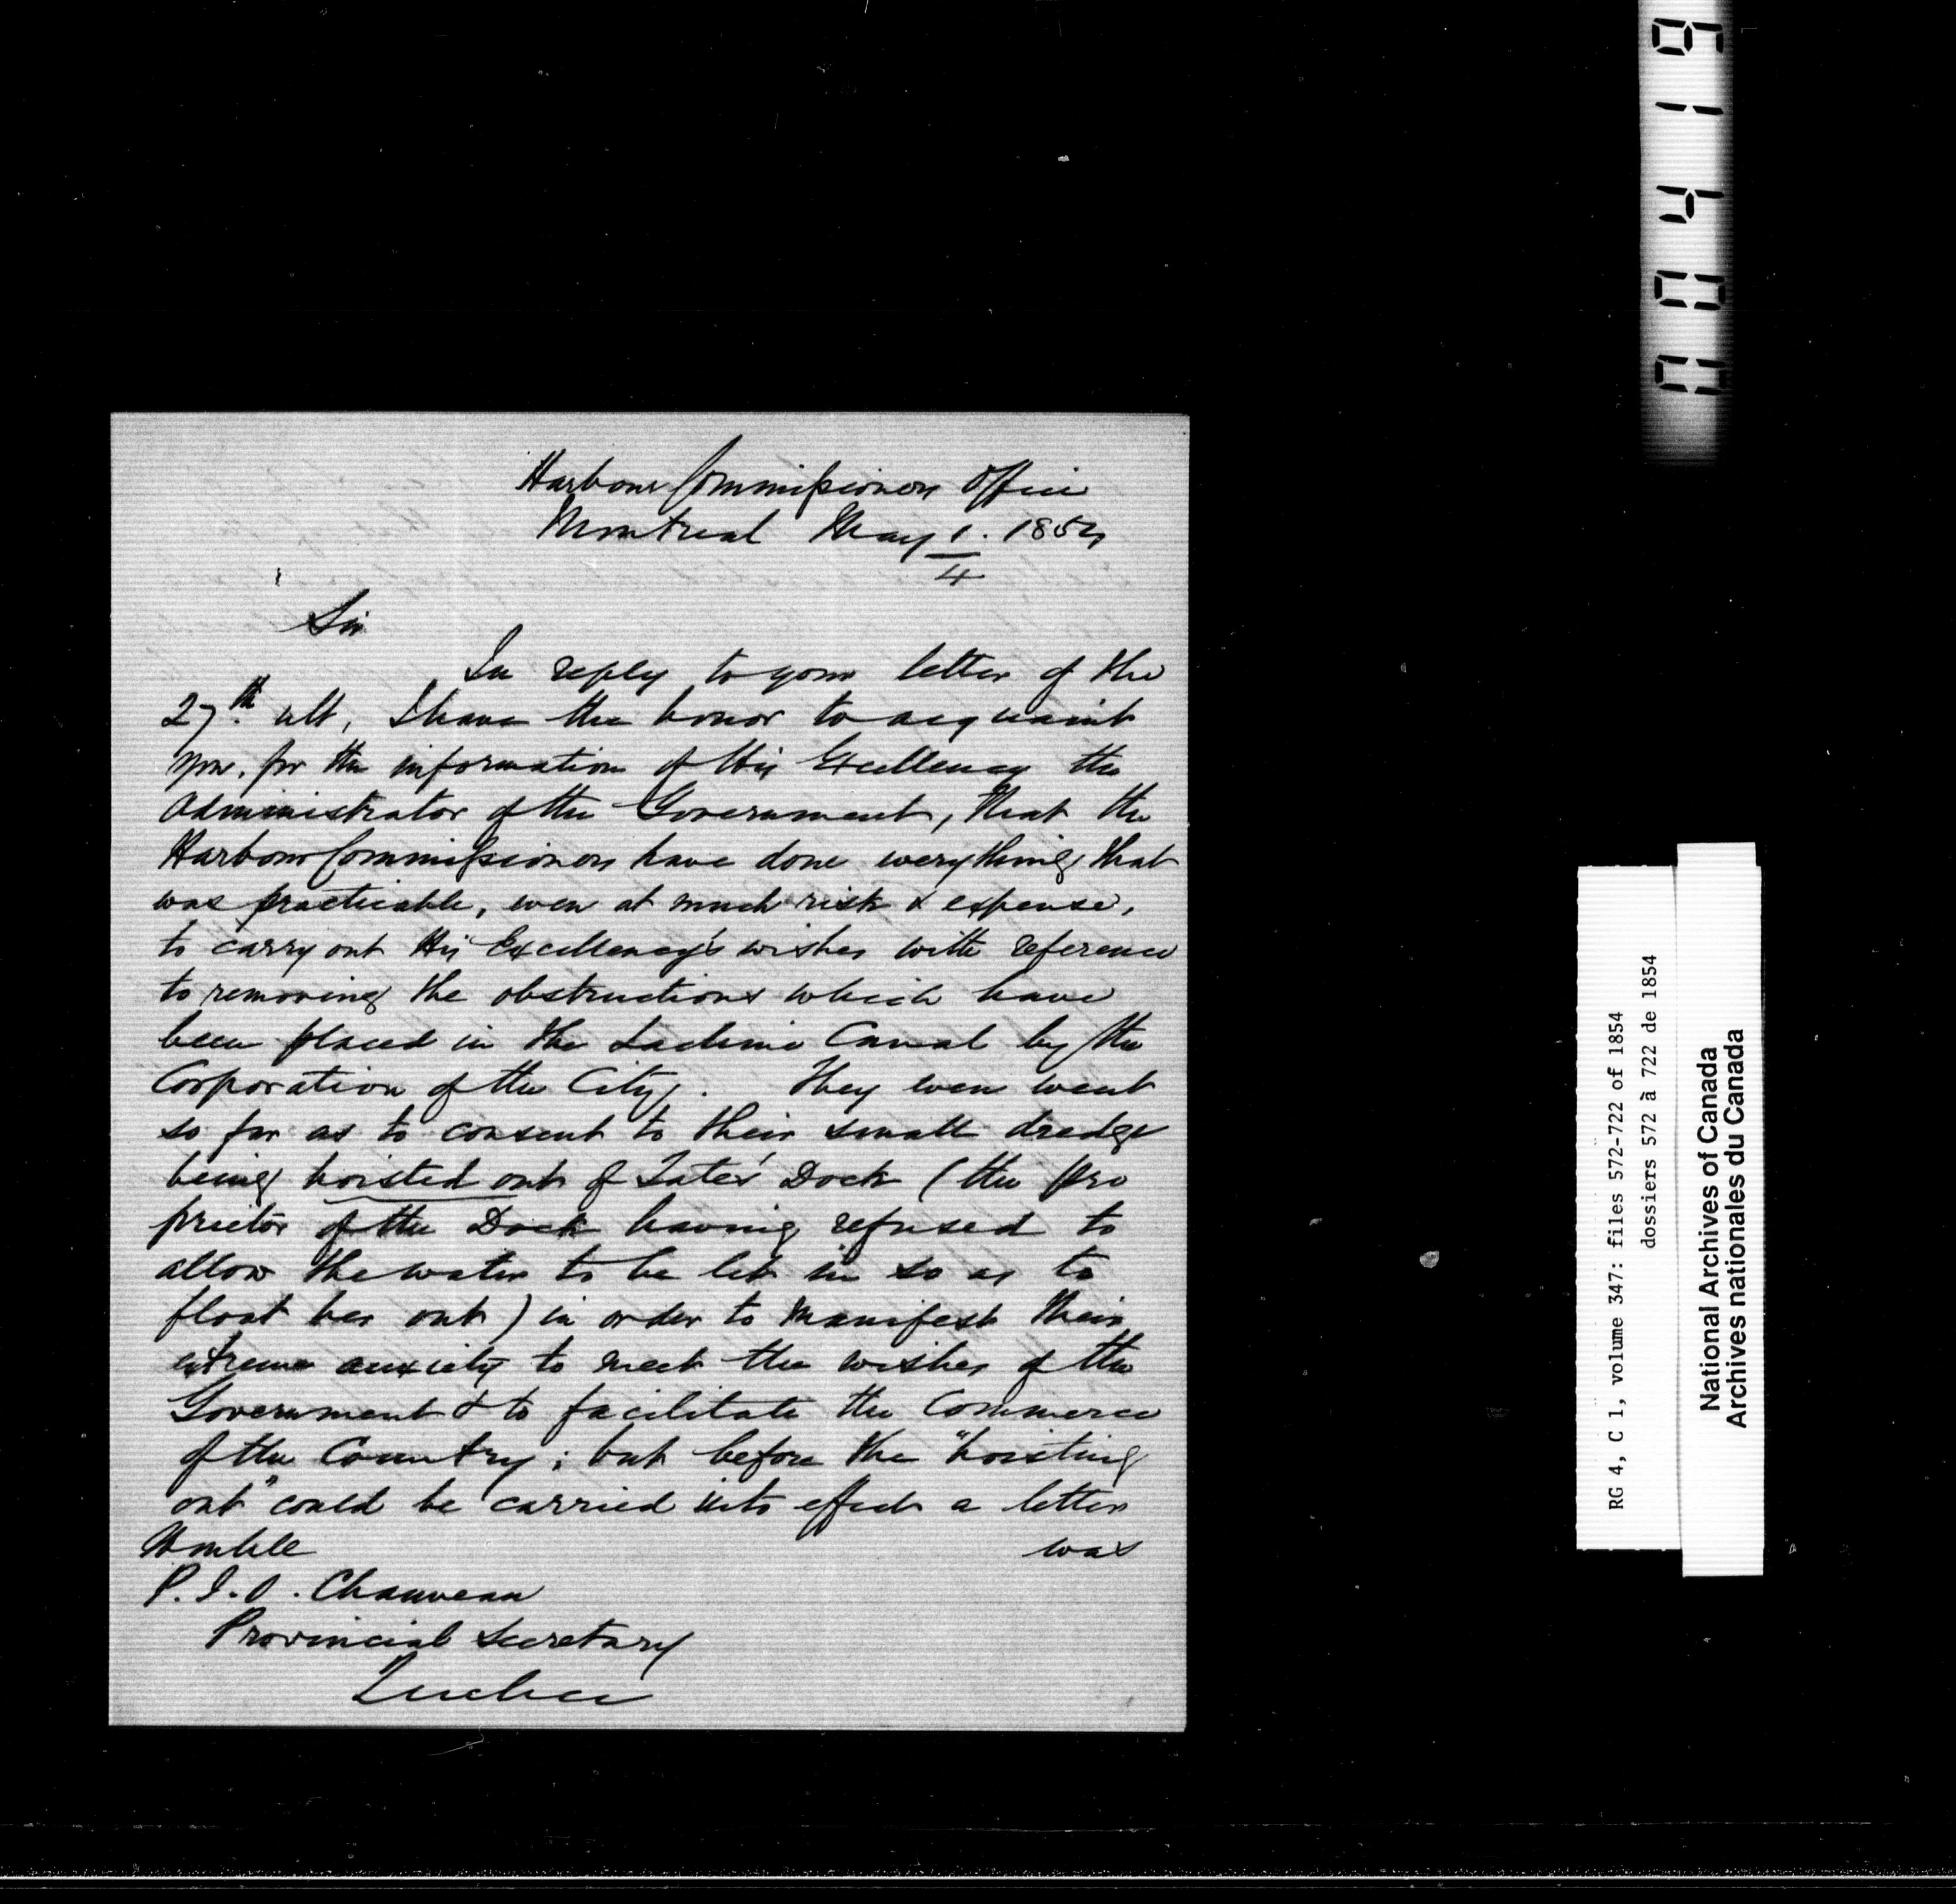 Harbour Commissioners Office
Montreal May 1. 1854
4
Sir
In reply to your letter of the
27th ult, I have the honor to acquaint
you, for the information of His Excellency the
Administrator of the Government, that the
Harbour Commissioners have done every thing that
was practicable, even at much risk & expense,
to carry out His Excellency's wishes with reference
to removing the obstructions which have
been placed in the Lachine Canal by the
Corporation of the City. They even went
so far as to consent to their small dredge
being hoisted out of Tate's Dock (the pro
prietor of the Dock having refused to
allow the water to be let in so as to
float her out) in order to manifest their
extreme anxiety to meet the wishes of the
Government & to facilitate the Commerce
of the Country; but before the "hoisting
out" could be carried into effect a letter
Honble was
P. J. O. Chauveau
Provincial Secretary
Quebec
RG 4, C 1, volume 347: files 572-722 of 1854
dossiers 572 à 722 de 1854
National Archives of Canada
Archives nationales du Canada